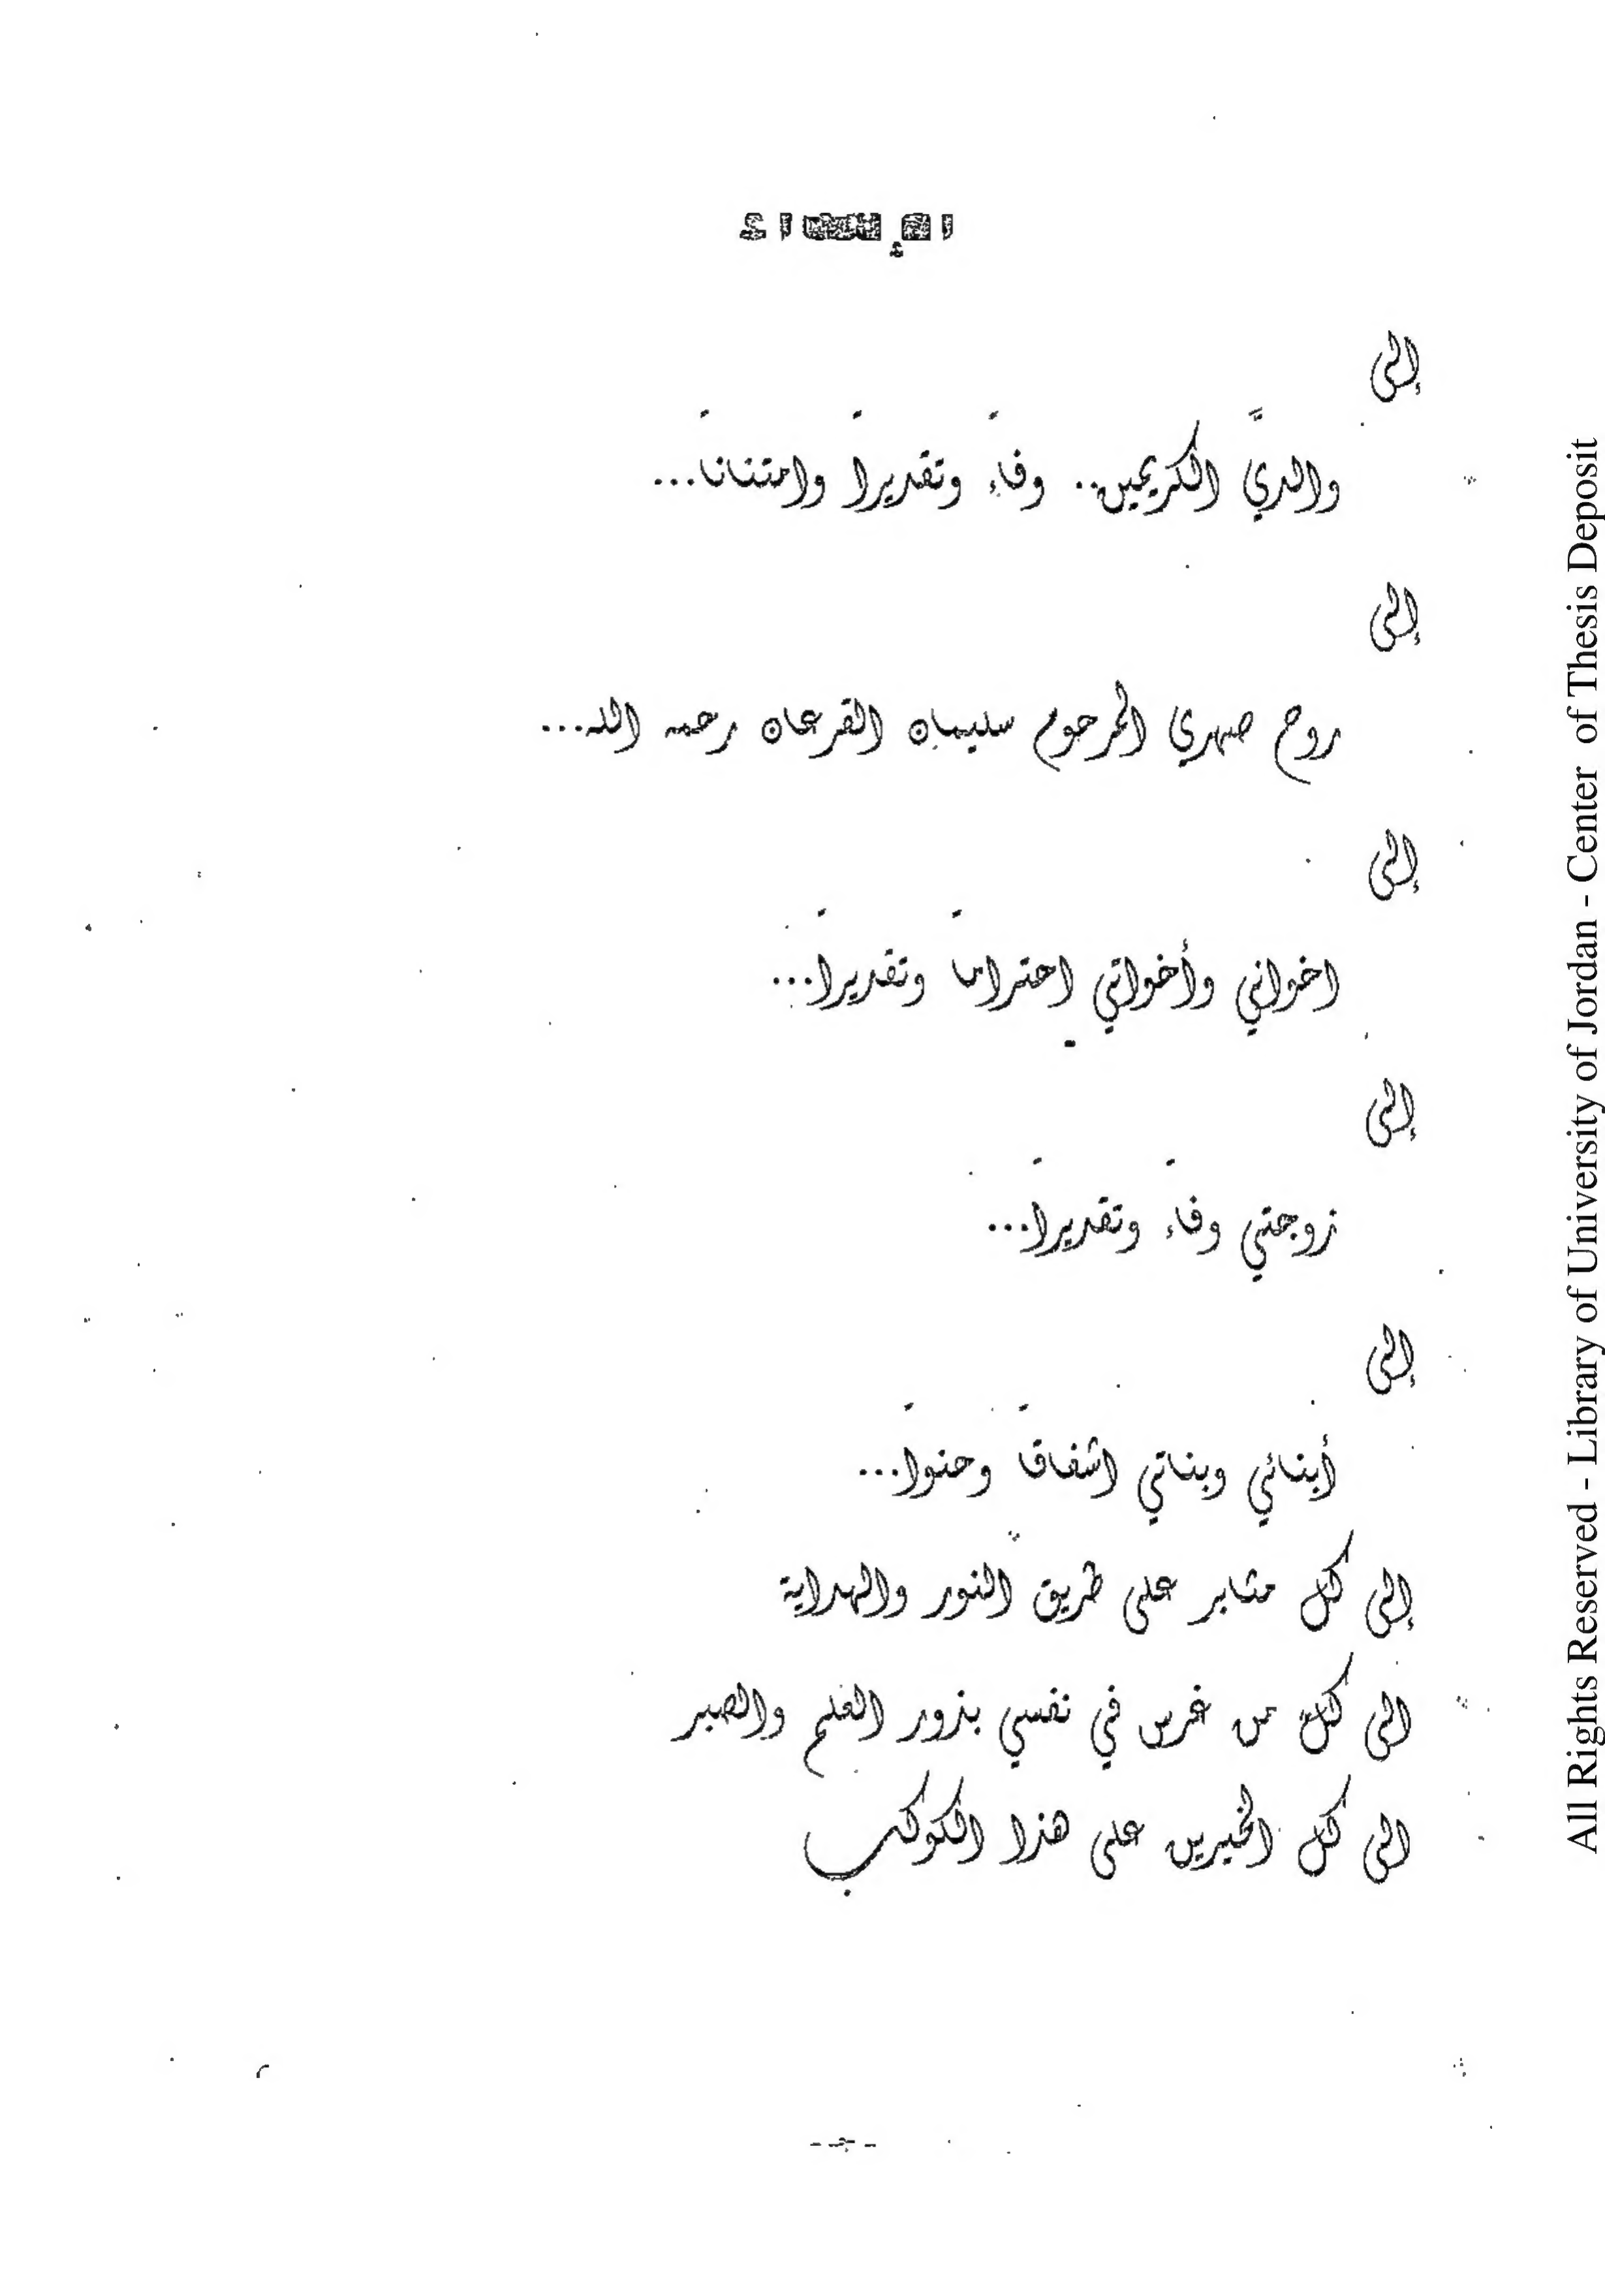 الإهداء
إلى
والديَّ الكريمين.. وفاءً وتقديراً وامتناناً...
إلى
روح صهري المرحوم سليمان القرعان رحمه الله...
إلى
اخواني وأخواتي احتراماً وتقديراً...
إلى
زوجتي وفاءً وتقديراً...
إلى
أبنائي وبناتي اشفاقاً وحنواً...
إلى كل مثابر على طريق النور والهداية
الى كل من غرس في نفسي بذور العلم والصبر
الى كل الخيرين على هذا الكوكب
All Rights Reserved - Library of University of Jordan - Center of Thesis Deposit